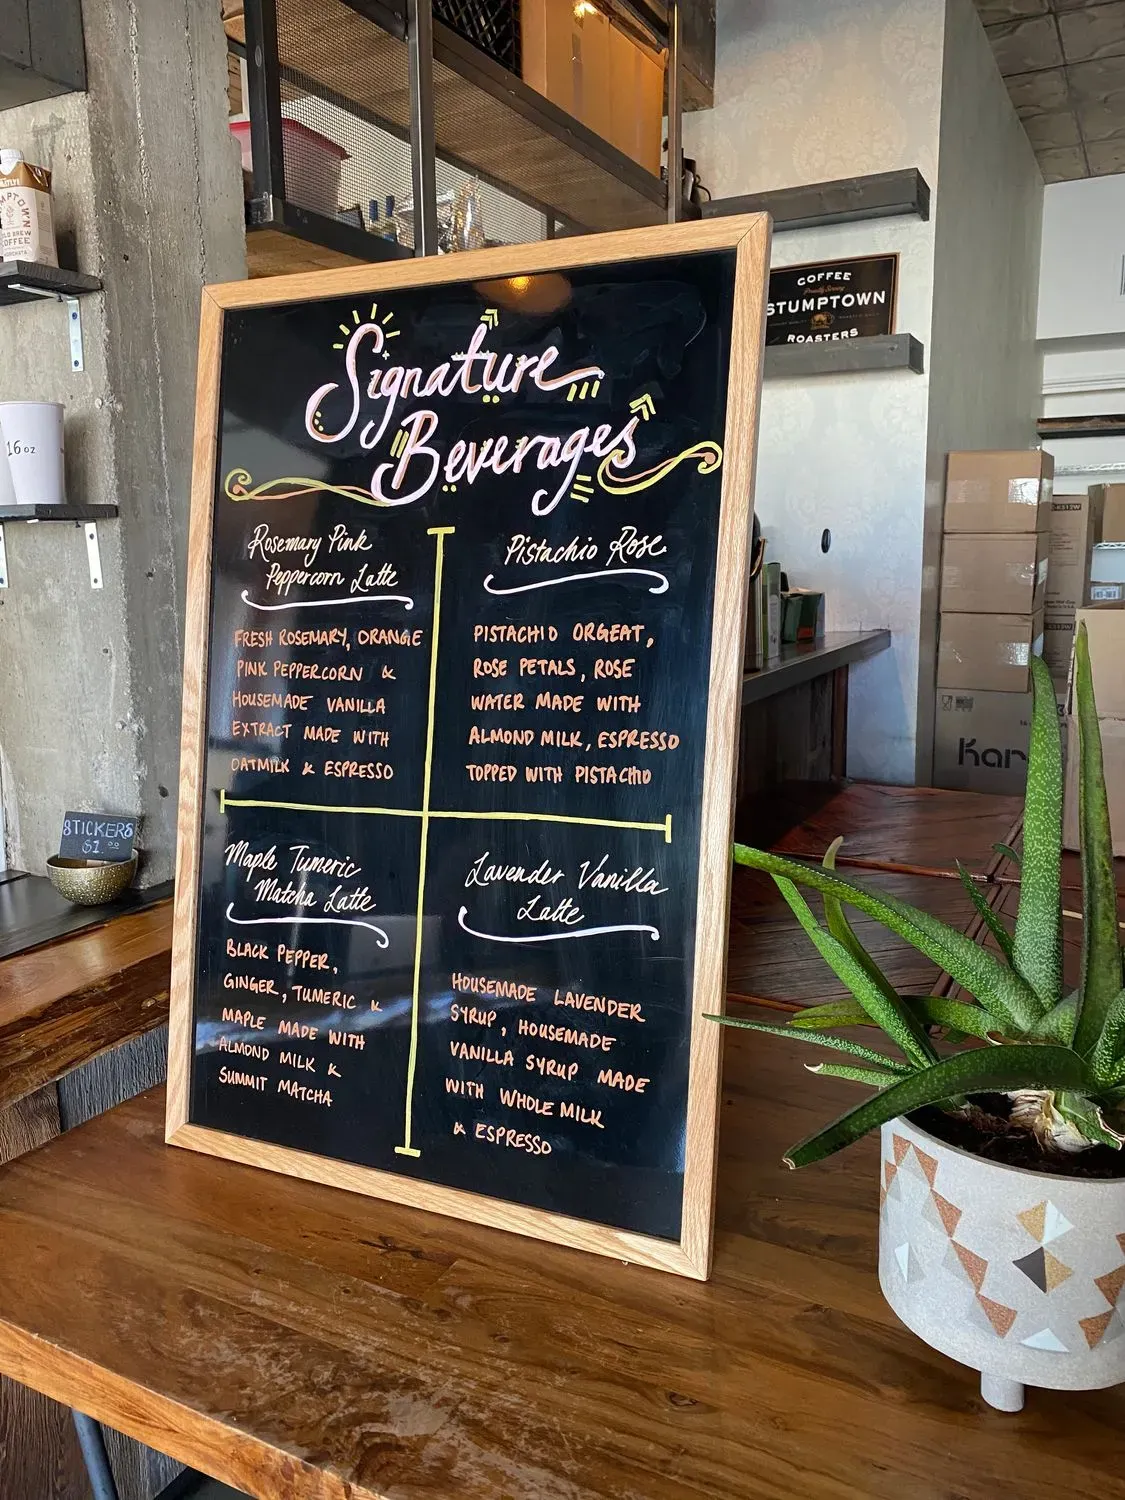 Signature
Beverages
Rosemary Pink
Peppercorn Latte
FRESH ROSEMARY, ORANGE
PINK PEPPERCORN &
HOUSEMADE VANILLA
EXTRACT MADE WITH
OATMILK & ESPRESSO
Pistachio Rose
PISTACHIO ORGEAT,
ROSE PETALS, ROSE
WATER MADE WITH
ALMOND MILK, ESPRESSO
TOPPED WITH PISTACHIO
Maple Tumeric
Matcha Latte
BLACK PEPPER,
GINGER, TUMERIC &
MAPLE MADE WITH
ALMOND MILK &
SUMMIT MATCHA
Lavender Vanilla
Latte
HOUSEMADE LAVENDER
SYRUP, HOUSEMADE
VANILLA SYRUP MADE
WITH WHOLE MILK
& ESPRESSO
COFFEE
Proudly Serving
STUMPTOWN
ROASTERS
16 oz
STICKERS
$1.00
COFFEE
Kar